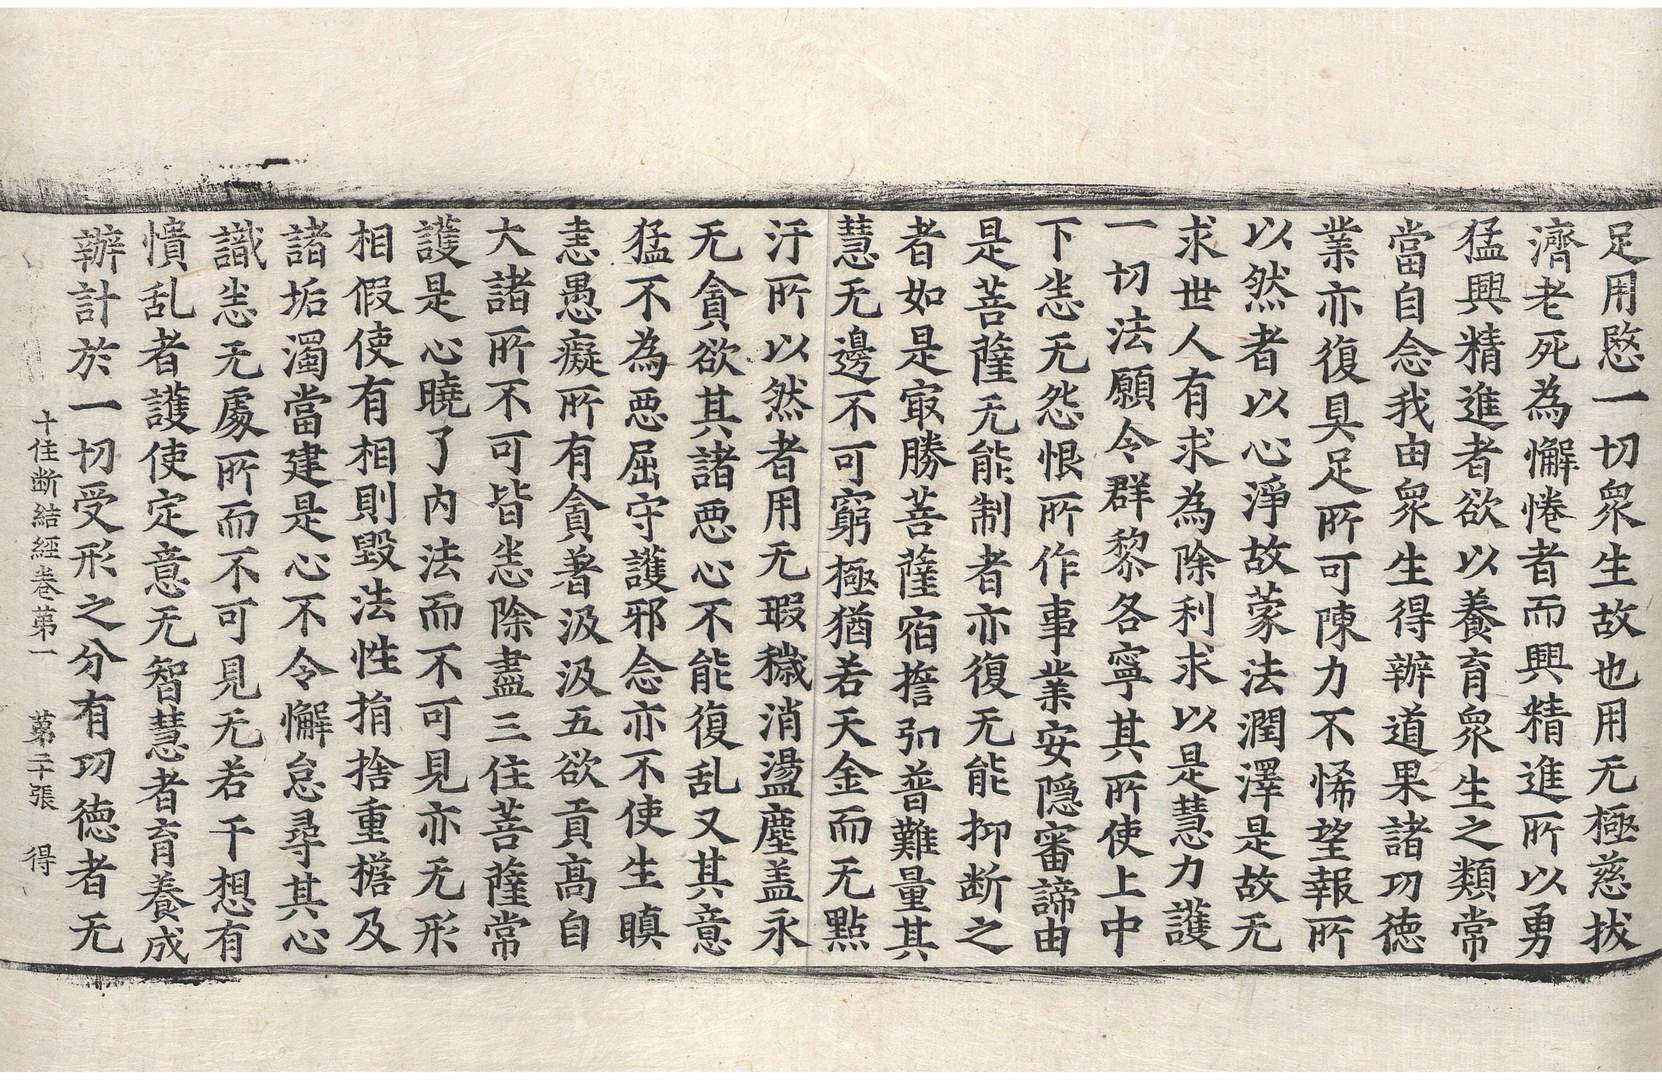 足用愍一切衆生故也用无極慈拔
濟老死為懈惓者而興精進所以勇
猛興精進者欲以養育衆生之類常
當自念我由衆生得辦道果諸功德
業亦復具足所可陳力不悕望報所
以然者以心淨故蒙法潤澤是故无
求世人有求為除利求以是慧力護
一切法願令群黎各寧其所使上中
下恙无怨恨所作事業安隱審諦由
是菩薩无能制者亦復无能抑断之
者如是㝡勝菩薩宿擔弘普難量其
慧无邊不可窮極猶若天金而无點
汙所以然者用无瑕穢消盪塵盖永
无貪欲其諸惡心不能復乱又其意
猛不為惡屈守護邪念亦不使生瞋
恚愚癡所有貪著汲汲五欲貢高自
大諸所不可皆恙除盡三住菩薩常
護是心曉了內法而不可見亦无形
相假使有相則毀法性捐捨重擔及
諸垢濁當建是心不令懈怠尋其心
識恙无處所而不可見无若干想有
憒乱者護使定意无智慧者育養成
辦計於一切受形之分有功德者无
十住断結經卷第一　第二十張　得